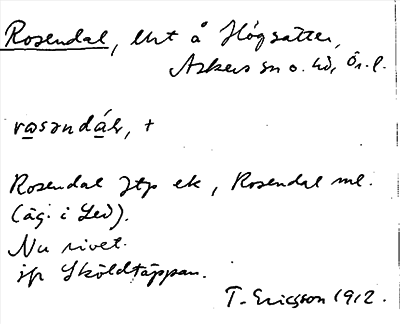 Rosendal, lht å Högsätter,
Askers sn o. hd, Ör. l.
rosəndáɫ, +
Rosendal Jtp ek, Rosendal ml.
(äg. i Led).
Nu rivet.
jfr Sköldtäppan.
T. Ericsson 1912.